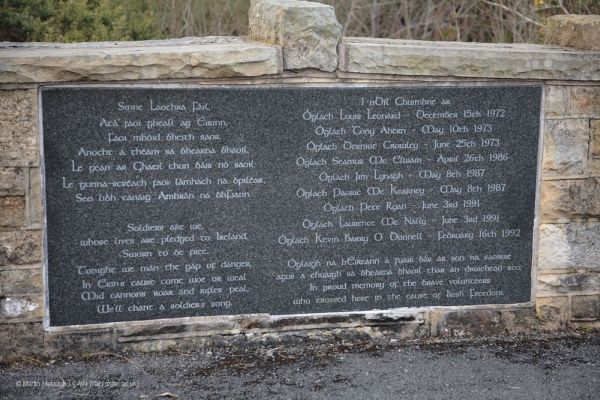 Sinne Laochra Fáil,
Atá faoi gheall ag Éirinn,
Faoi mhóid bheith saor.
Anocht a théam sa bhearna bhaoil,
Le gean ar Ghaeil chun báis nó saoil
Le gunna-scréach faoi lámhach na bpiléar,
Seo libh canaig Amhrán na bhFiann.
Soldiers are we,
whose lives are pledged to Ireland
Sworn to be free.
Tonight we man the gap of danger,
In Erin's cause come woe or weal
Mid cannons roar and rifles peal,
We'll chant a soldiers song.
I nDíl Chuimhne ar
Óglach Louis Leonard - December 15th 1972
Óglach Tony Ahern - May 10th 1973
Óglach Dermot Crowley - June 25th 1973
Óglach Seamus Mc Elwain - April 26th 1986
Óglach Jim Lynagh - May 8th 1987
Óglach Padraic Mc Kearney - May 8th 1987
Óglach Pete Ryan - June 3rd 1991
Óglach Laurence Mc Nally - June 3rd 1991
Óglach Kevin Barry O Donnell - February 16th 1992
Óglaigh na hÉireann a fuair bás ar son na saoirse
agus a chuaigh sa bhearna bhaoil thar an droichead seo.
In proud memory of the brave volunteers
who crossed here in the cause of Irish Freedom.
© Martin Melaugh / CAIN (cain.ulster.ac.uk)